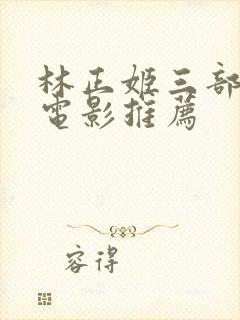 林正姬三部
電影推薦
容得